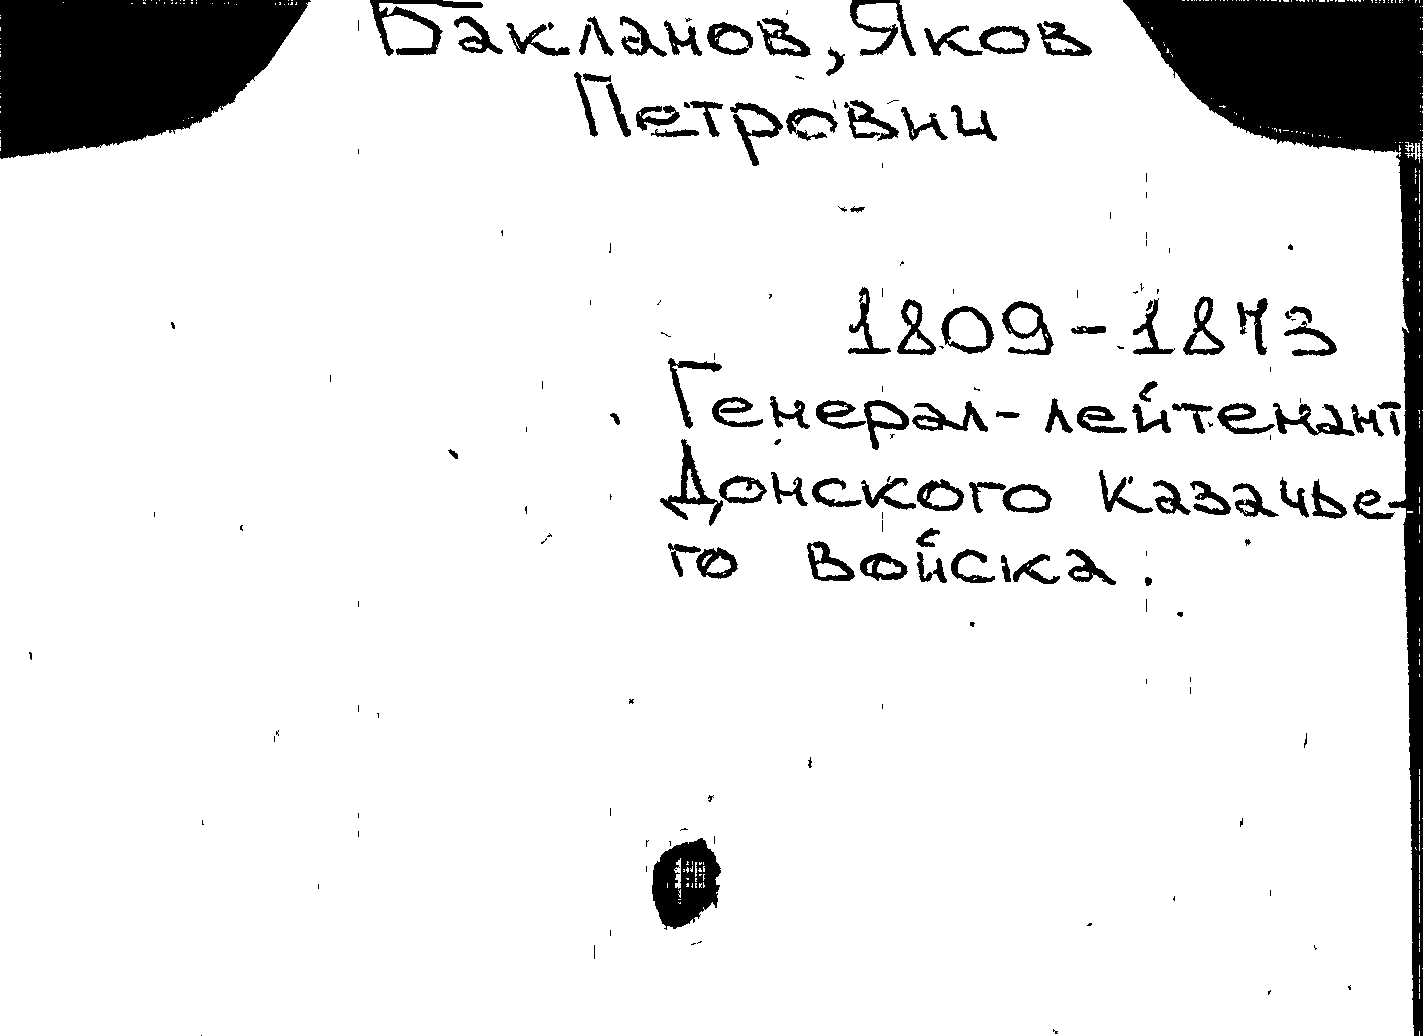 Бакланов, Яков
Петрович
1809-1873
Генерал-лейтенант
Донского казачье-
го войска.